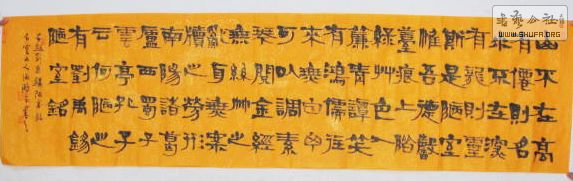 山不在高
有僊則名
水不在深
有龍則靈
斯是陋室
惟吾德馨
苔痕上階
綠草色入
簾青談笑
有鴻儒往
來無白丁
可以調素
琴閱金經
無絲竹之
亂耳無案
牘之勞形
南陽諸葛
廬西蜀子
雲亭孔子
云何陋之
有劉禹錫
陋室銘
WWW.SHUFA.ORG